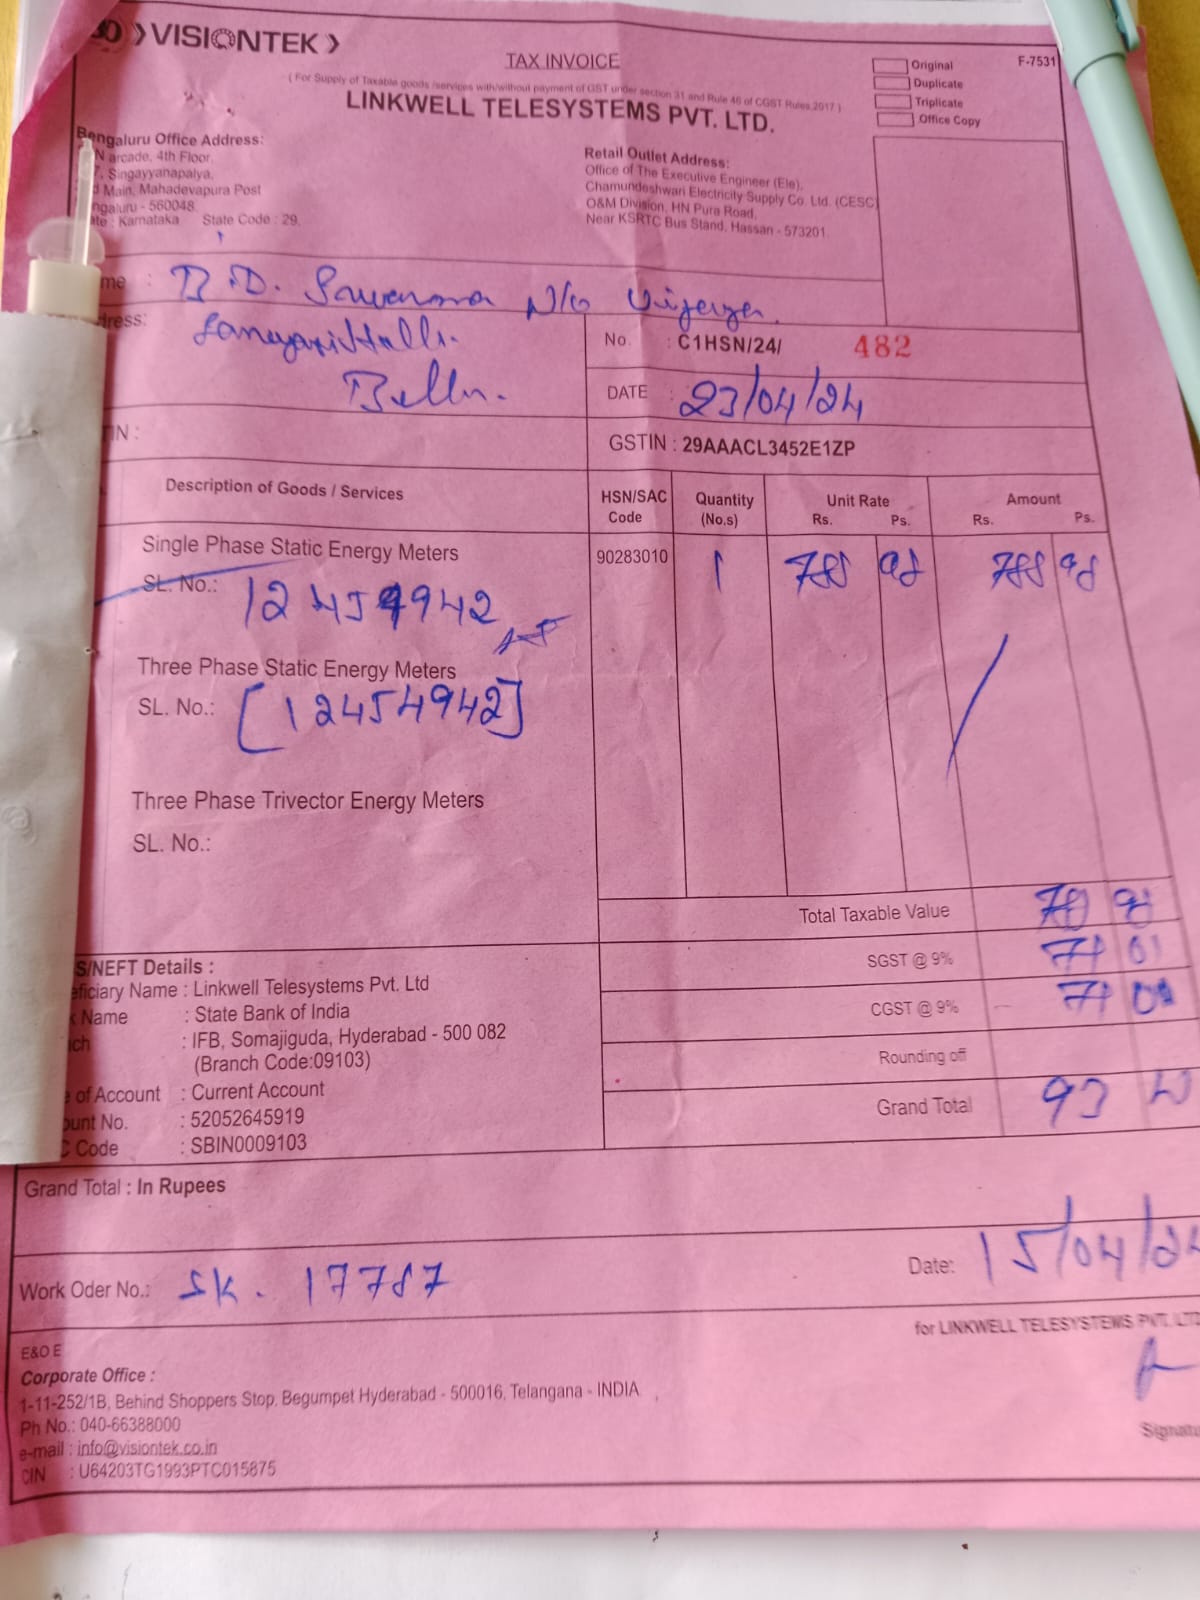 VISIONTEK
TAX INVOICE
( For Supply of Taxable goods /services with/without payment of GST under section 31 and Rule 46 of CGST Rules,2017 )
LINKWELL TELESYSTEMS PVT. LTD.
Original
Duplicate
Triplicate
Office Copy
F-7531
Bengaluru Office Address:
arcade, 4th Floor,
Singayyanapalya,
Main, Mahadevapura Post
ngaluru - 560048.
ate : Karnataka State Code : 29.
Retail Outlet Address:
Office of The Executive Engineer (Ele),
Chamundeshwari Electricity Supply Co. Ltd. (CESC)
O&M Division, HN Pura Road,
Near KSRTC Bus Stand, Hassan - 573201.
me : B.D.
dress:
No. : C1HSN/24/ 482
DATE : 23/04/24
TIN :
GSTIN : 29AAACL3452E1ZP
Description of Goods / Services
HSN/SAC Code
Quantity (No.s)
Unit Rate
Rs. Ps.
Amount
Rs. Ps.
Single Phase Static Energy Meters
90283010 1 788 98 788 98
SL. No.: 12454942
Three Phase Static Energy Meters
SL. No.: [12454942]
Three Phase Trivector Energy Meters
SL. No.:
Total Taxable Value
SGST @ 9% 71 01
CGST @ 9% 71
Rounding off
Grand Total
S/NEFT Details :
eficiary Name : Linkwell Telesystems Pvt. Ltd
k Name : State Bank of India
ich : IFB, Somajiguda, Hyderabad - 500 082
(Branch Code:09103)
e of Account : Current Account
ount No. : 52052645919
C Code : SBIN0009103
Grand Total : In Rupees
Work Oder No.: SK. 17787
Date: 15/04/24
for LINKWELL TELESYSTEMS PVT. LTD
Signatu
E&O E
Corporate Office :
1-11-252/1B, Behind Shoppers Stop, Begumpet Hyderabad - 500016, Telangana - INDIA
Ph No.: 040-66388000
e-mail : info@visiontek.co.in
CIN : U64203TG1993PTC015875